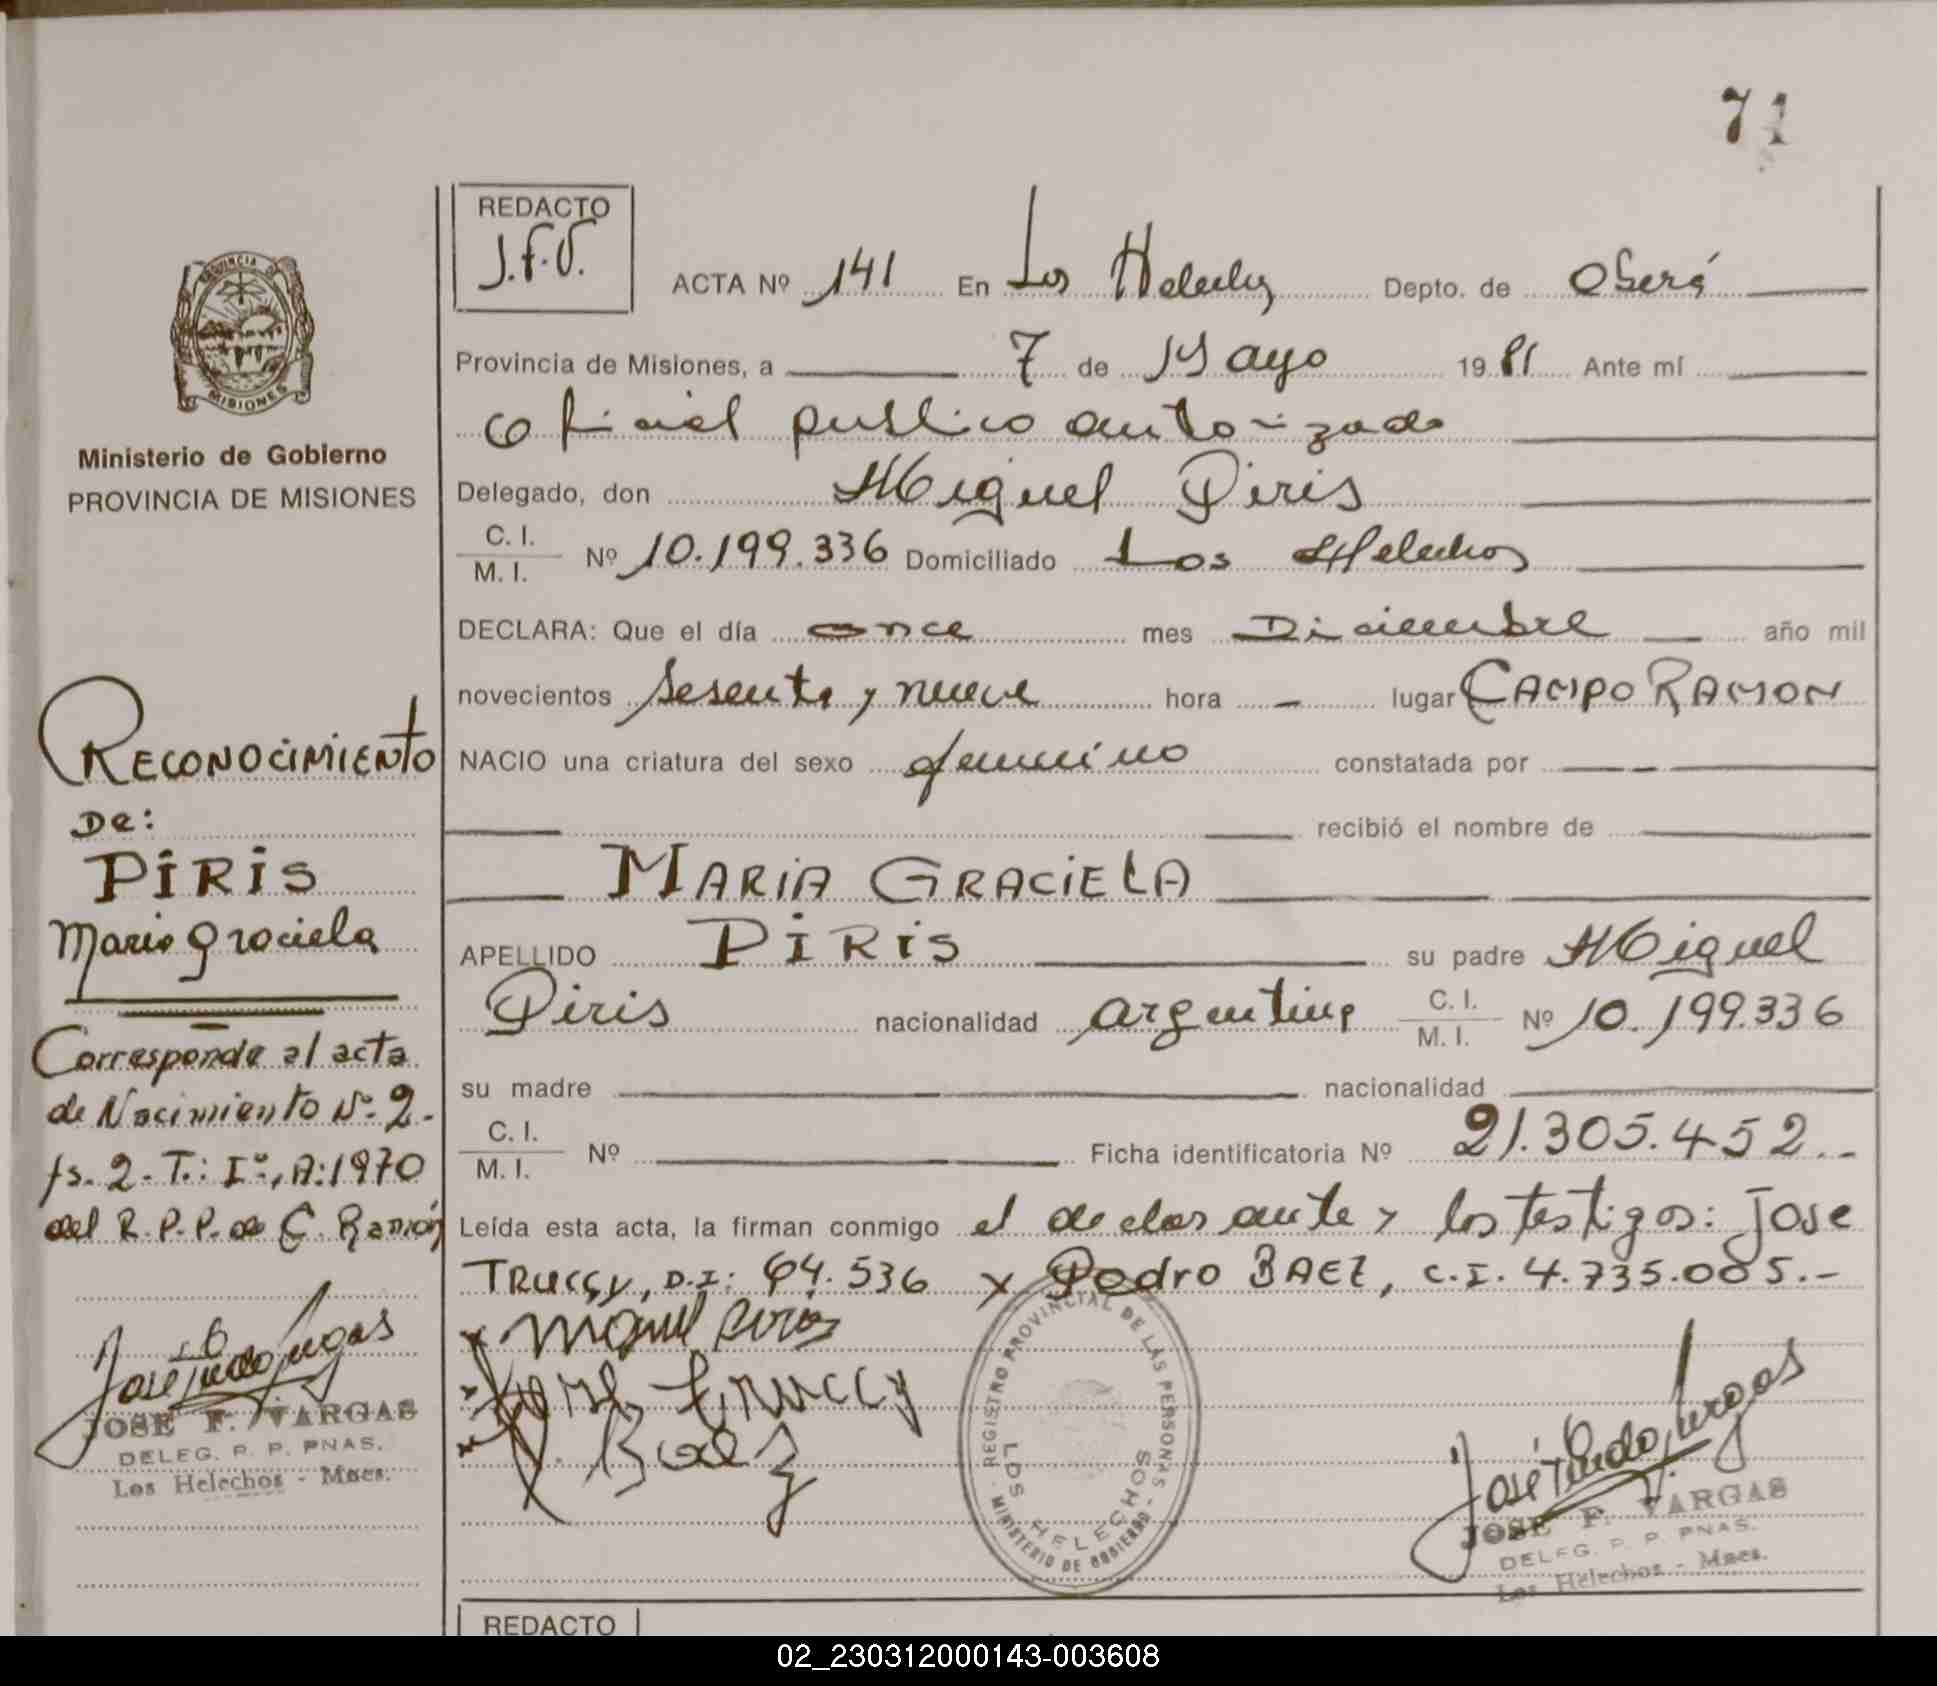 71
REDACTO
J.F.V.
ACTA Nº 141 En Los Helechos Depto. de Oberá
Provincia de Misiones, a 7 de Mayo 1981 Ante mí
oficial publico autorizado
Delegado, don Miguel Piris
C. I.
M. I.
Nº 10.199.336 Domiciliado Los Helechos
DECLARA: Que el día once mes Diciembre año mil
novecientos sesenta y nueve hora - lugar CAMPO RAMON
NACIO una criatura del sexo femenino constatada por
recibió el nombre de
MARIA GRACIELA
APELLIDO PIRIS su padre Miguel
Piris nacionalidad argentina C. I. M. I. Nº 10.199.336
su madre nacionalidad
C. I.
M. I.
Nº Ficha identificatoria Nº 21.305.452.-
Leída esta acta, la firman conmigo el declarante y los testigos: Jose
TRUCCY, D.I: 64.536 y Pedro BAEZ, C.I. 4.735.005.-
Miguel Piris
Jose Truccy
P. Baez
REGISTRO PROVINCIAL DE LAS PERSONAS
MINISTERIO DE GOBIERNO
LOS HELECHOS
JOSE F. VARGAS
DELEG. R. P. PNAS.
Los Helechos - Mnes.
PROVINCIA DE
MISIONES
Ministerio de Gobierno
PROVINCIA DE MISIONES
RECONOCIMIENTO
De:
PIRIS
Maria Graciela
Corresponde al acta
de Nacimiento Nº 2.
fs. 2. T.: Iº, A:1970
del R.P.P. de C. Ramón
JOSE F. VARGAS
DELEG. R. P. PNAS.
Los Helechos - Mnes.
REDACTO
02_230312000143-003608